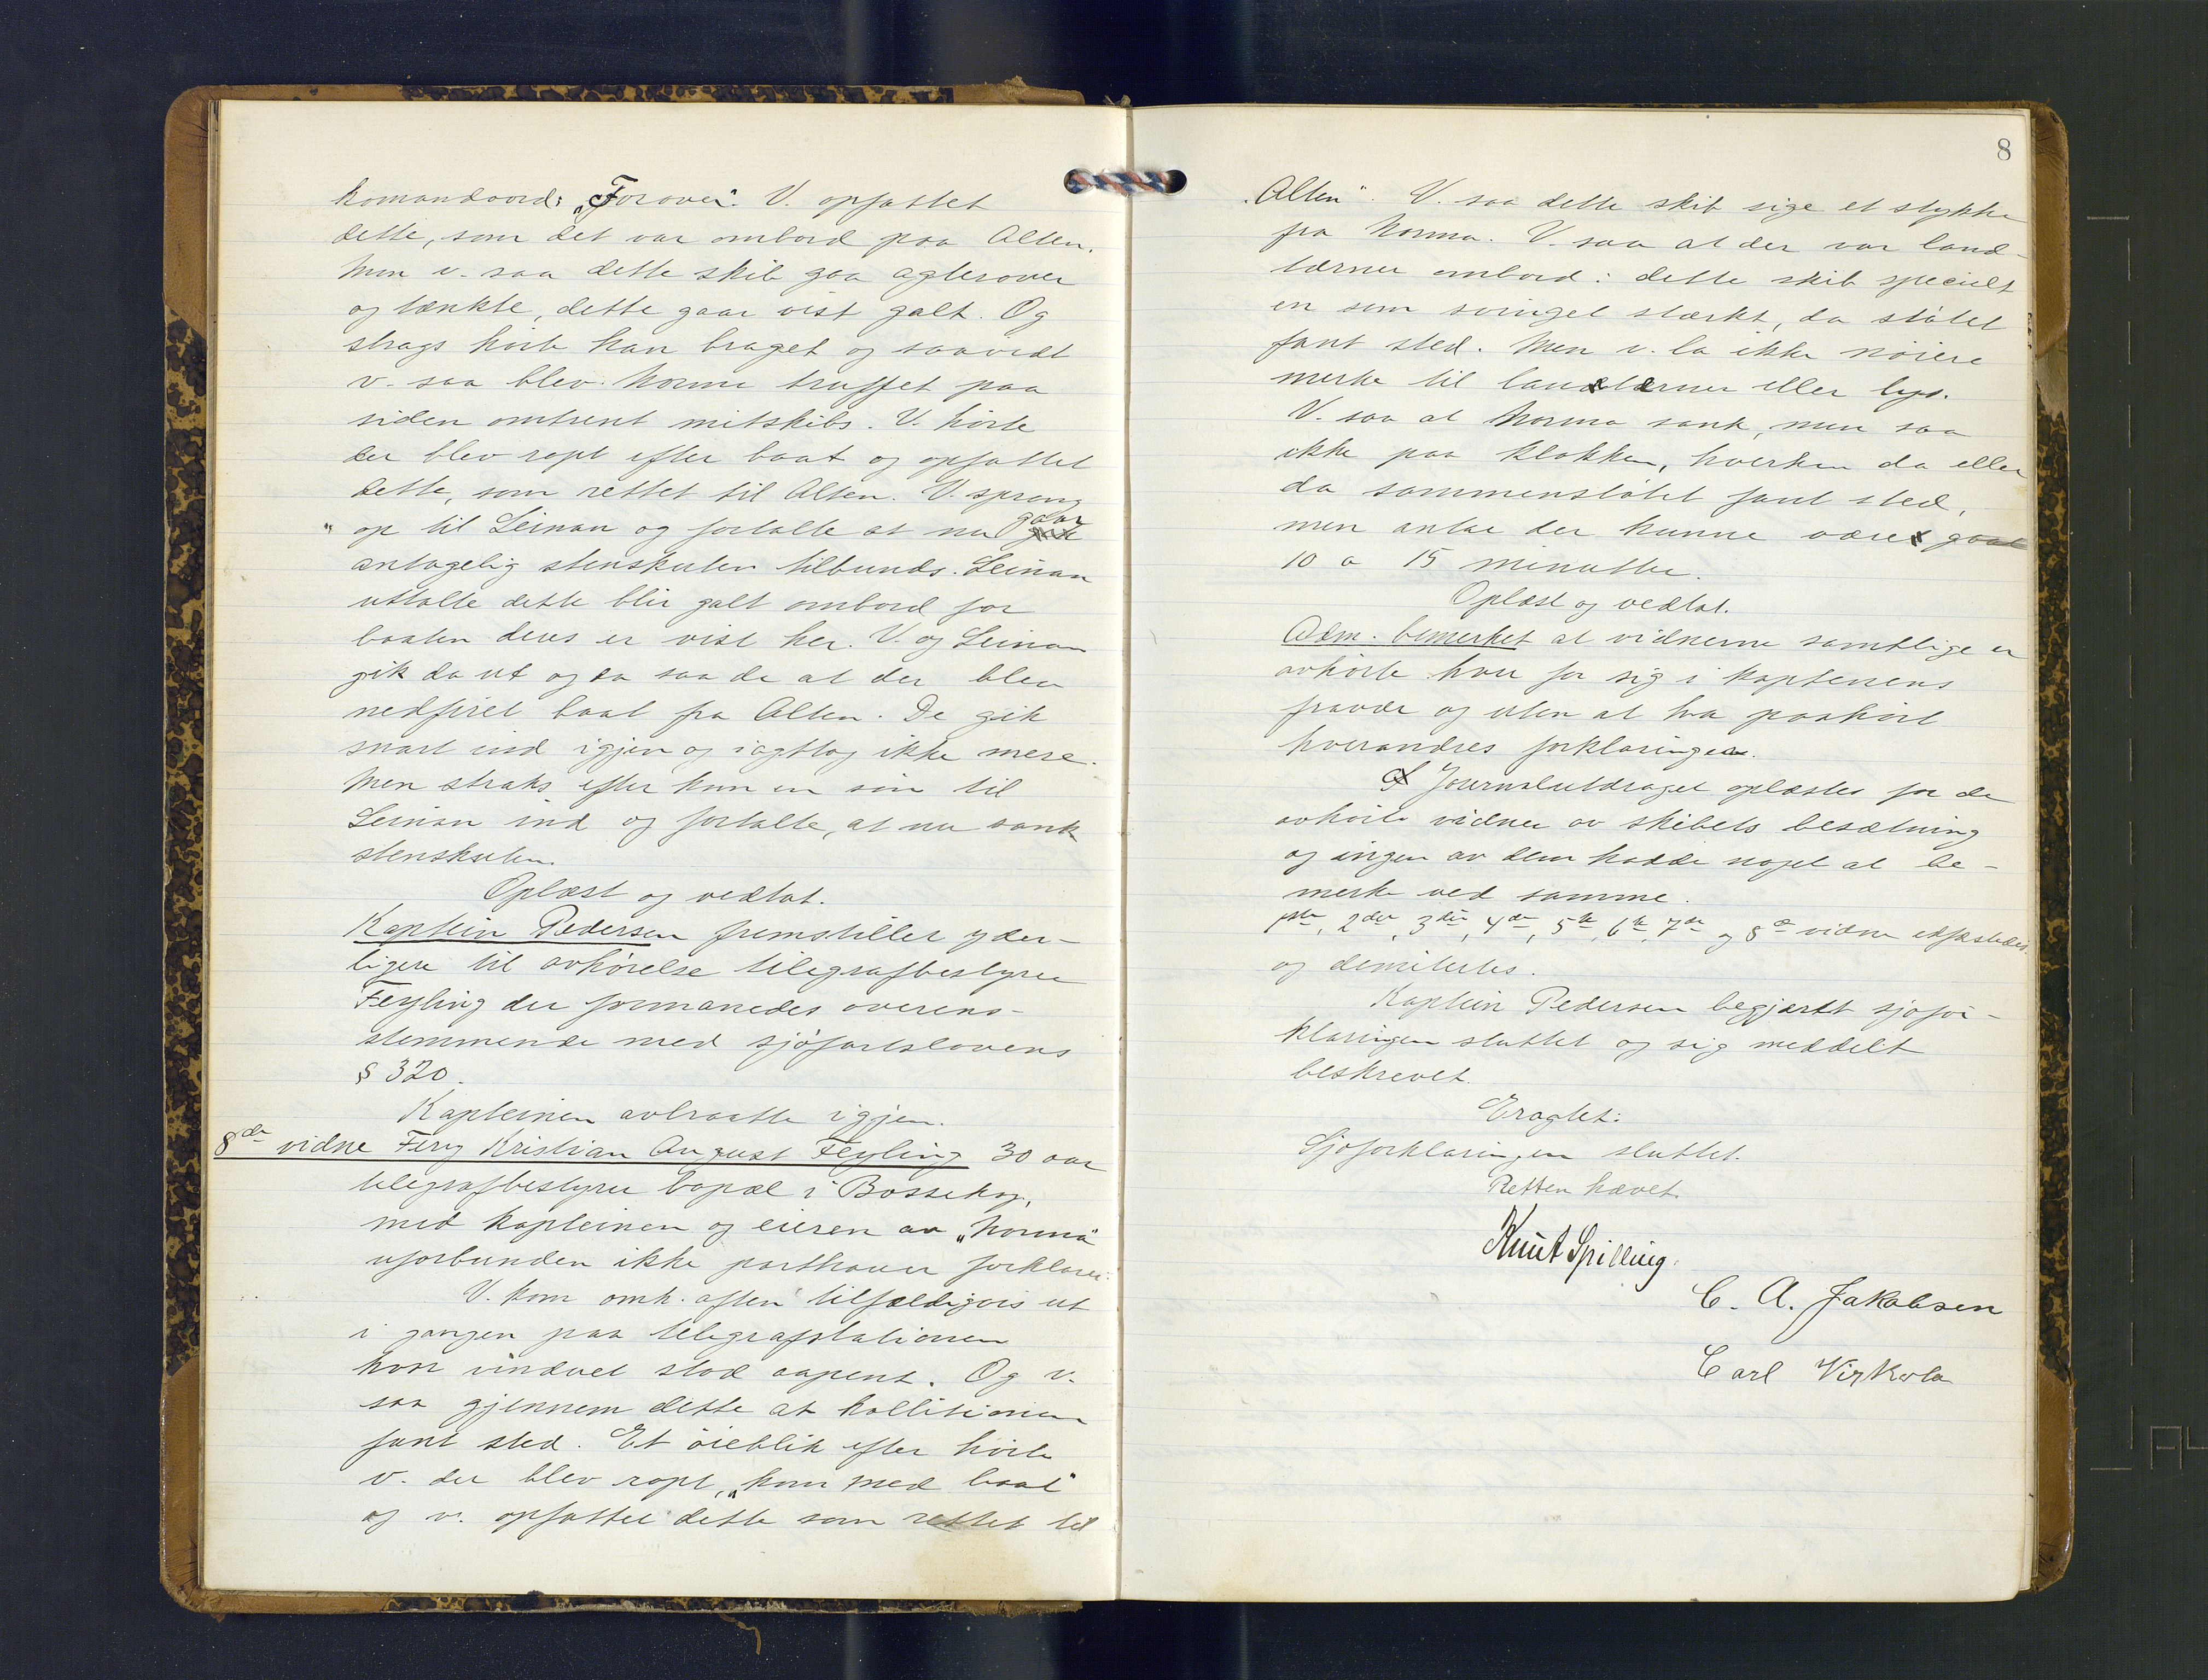 komandoord: „Forover". V. opfattet
dette, som det var ombord paa Alten.
Men v. saa dette skib gaa agterover
og tænkte, dette gaar vist galt. Og
strags hörte han braget og saavidt
v. saa blev Norma truffet paa
siden omtrent mitskibs. V. hörte
der blev ropt efter baat og opfattet
dette, som rettet til Alten. V. sprang
op til Leinan og fortalte at nu gaar
antagelig stenskuten tilbunds. Leinan
uttalte dette blir galt ombord for
baaten deres er vist her. V. og Leinan
gik da ut og da saa de at der blev
nedfiret baat fra Alten. De gik
snart ind igjen og iagttog ikke mere.
Men straks efter kom en sön til
Leinan ind og fortalte, at nu sank
stenskuten.
Oplæst og vedtat.
Kaptein Pedersen fremstillet yder-
ligere til avhörelse telegrafbestyrer
Feyling der formanedes overens-
stemmende med sjöfartslovens
§ 320.
Kapteinen avtraatte igjen.
8de vidne Ferg Kristian August Feyling 30 aar
telegrafbestyrer bopæl i Bossekop,
med kapteinen og eieren av „Norma"
uforbunden ikke parthaver forklarer:
V. kom omh. aften tilfældigvis ut
i gangen paa telegrafstationen
hvor vinduet stod aapent. Og v.
saa gjennem dette at kollisionen
fant sted. Et öieblik efter hörte
v. der blev ropt, „kom med baat"
og v. opfattet dette som rettet til
8
„Alten". V. saa dette skib sige et stykke
fra Norma. V. saa at der var land-
tærner ombord i dette skib specielt
en som svinget stærkt, da stötet
fant sted. Men v. la ikke nöiere
merke til lantærner eller lys.
V. saa at Norma sank, men saa
ikke paa klokken, hverken da eller
da sammenstötet fant sted,
men antar der kunne være gaat
10 a 15 minutter.
Oplæst og vedtat.
Adm. bemerket at vidnerne samtlige er
avhörte hver for sig i kapteinens
fravær og uten at ha paahört
hverandres forklaringer.
Journalutdraget oplæstes for de
avhörte vidner av skibets besætning
og ingen av dem hadde noget at be-
merke ved samme.
1ste, 2det, 3die, 4de, 5te, 6te, 7de og 8de vidne edfæstedes
og dimitertes.
Kaptein Pedersen begjært sjöfor-
klaringen sluttet og sig meddelt
beskrevet.
Eragtet:
Sjöforklaringen sluttet.
Retten hævet.
Knut Spilling.
C. A. Jakobsen
Carl Virkola